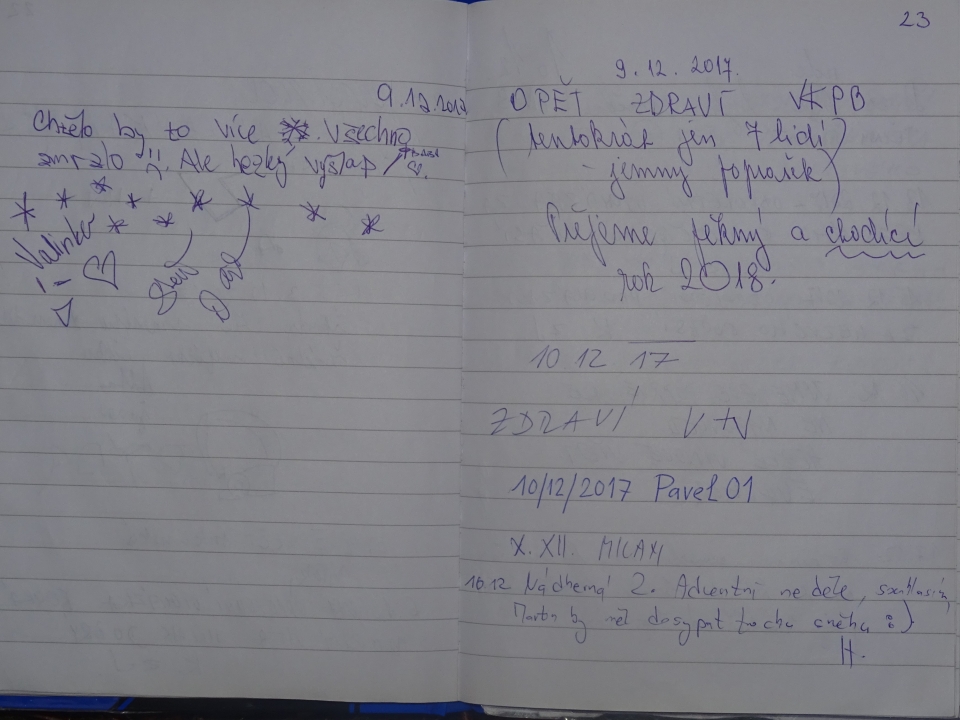 9.12.2017
Chtělo by to více . Všechno
zmrzlo !! Ale hezký výšlap
Valinka
23
9. 12. 2017.
OPĚT ZDRAVÍ VKPB
(tentokrát jen 7 lidí
- jemný poprašek)
Přejeme pěkný a chodící
rok 2018.
10 12 17
ZDRAVÍ V+V
10/12/2017 Pavel 01
X. XII.
10.12 Nádherná 2. Adventní neděle, souhlasím,
Martin by měl dosypat trochu sněhu :)
H.